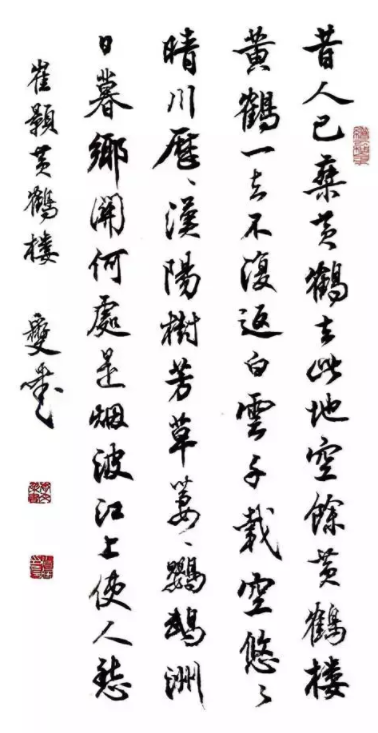 昔人已乘黄鶴去此地空餘黄鶴楼
黄鶴一去不復返白雲千載空悠々
晴川歷々漢陽樹芳草萋々鸚鵡洲
日暮鄉關何處是烟波江上使人愁
崔顥黄鶴楼 雙